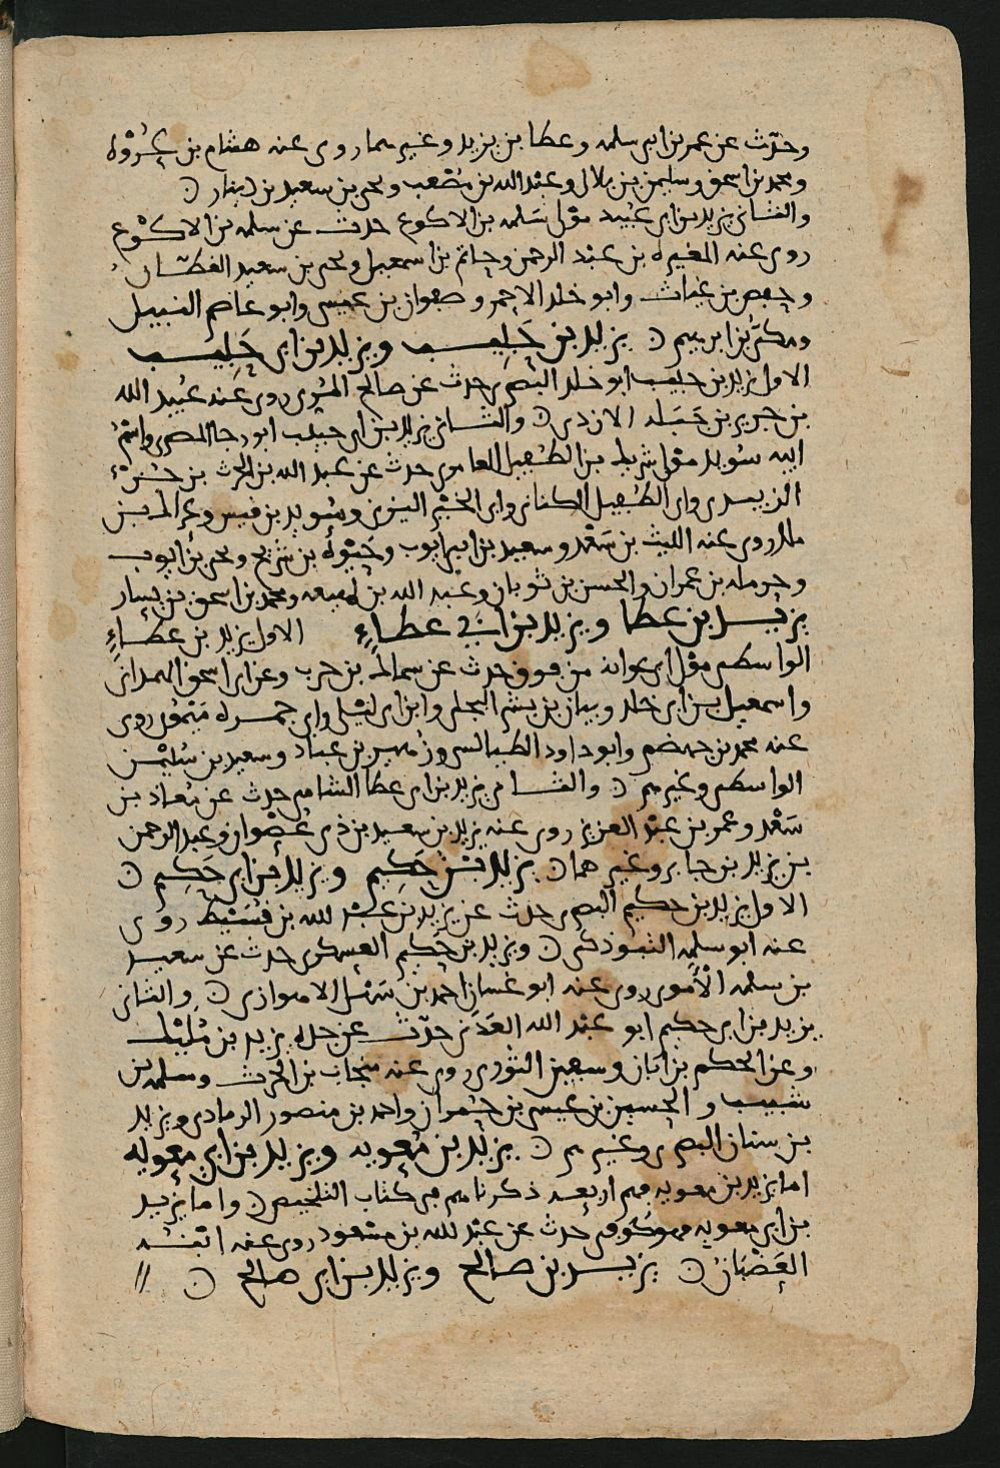 وحدّث عن عمر بن ابي سلمه وعطا بن يزيد وغيرهما روى عنه هشام بن عُروْه
ومحمد بن اسحق وسليمن بن بلال وعبد الله بن مُصْعب ويحيى بن سعيد بن دينار ن
والثاني يزيد بن ابي عُبيد مولى سَلمه بن الاكوع حدث عن سلمه بن الاكْوع
روى عنه المغيره بن عبْد الرحمن وحاتم بن اسمعيل ويحيى بن سعيد القطّان
وحفص بن غياث وابو خلد الاحمر وصفوان بن عيسى وابو عاصم النبيل
ومكيّ بن ابرهيم ن يزيد بن حَبِيب ويزيد بن ابي حَبِيب
الاول يزيد بن حبيب ابو خلد البصري حدث عن صالح المُرّي روى عنه عُبيد الله
بن جرير بن جَبَله الازدي ن والثاني يزيد بن ابي حبيب ابو رجا المصري واسْم
ابيه سُويد مولى شريك بن الطُفيل العامري حدث عن عبد الله بن الحرث بن جُزْء
الزبيدي وابي الطُفيل الكناني وابي الخيْر اليزني وسُويد بن قيس وعراك بن
ملك روى عنه الليث بن سَعْد وسعيد بن ابي ايوب وحَيْوةُ بن شُريح ويحيى بن ايوب
وحرمله بن عمران والحسن بن ثوبان وعبْد الله بن لهيعه ومحمد بن اسحق بن يسار
يزيد بن عطا ويزيد بن ابي عطاءٍ الاول يزيد بن عطاءٍ
الواسطي مولى ابي عوانه من فوق حدث عن سماك بن حرب وعن ابي اسحق الهمداني
واسمعيل بن ابي خلد وبيان بن بشر البجلي وابن ابي ليْلى وابي حمزه مَيْمون روى
عنه محمد بن جهضم وابو داود الطيالسي وزُهير بن عباد وسعيد بن سُليْمن
الواسطي وغيرهم ن والثاني يزيد بن ابي عطا الشامي حدث عن مُعاذ بن
سَعْد وعمر بن عبْد العزيز روى عنه يزيد بن سعيد بن ذي عُصْوان وعبد الرحمن
بن يزيد بن جابر وغيرهما ن يزيد بن حَكِيم ويزيد بن ابي حَكِيم ن
الاول يزيد بن حكيم البصري حدث عن يزيد بن عبْد الله بن قُسَيْط روى
عنه ابو سلمه التبوذكي ن ويزيد بن حَكيم العسكري حدث عن سعيد
بن سلمه الأُموي روى عنه ابو غسان احمد بن سَهْل الاهوازي ن والثاني
يزيد بن ابي حكيم ابو عبْد الله العَدَني حدّث عن جده يزيد بن مُليْك
وعن الحكم بن ابان وسفين الثوري روى عنه منجاب بن الحرث وسلمه بن
شبيب والحسين بن عيسى بن حُمران واحمد بن منصور الرمادي ويزيد
بن سنان البصري وغيرهم ن يزيد بن مُعويه ويزيد بن ابي معويه
اما يزيد بن معويه فهم اربعه ذكرناهم في كتاب التلخيص ن واما يزيد
بن ابي معويه فهو كُوفي حدث عن عبْد الله بن مسْعود روى عنه ابْنه
الغَضْبان ن يزيد بن صالح ويزيد بن ابي صالح ن